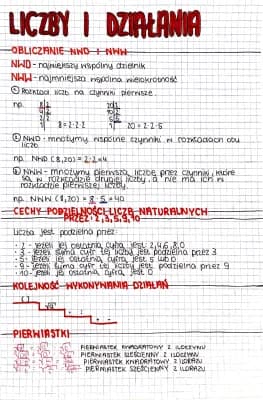 LICZBY I DZIAŁANIA
OBLICZANIE NWD I NWW
NWD - największy wspólny dzielnik
NWW - najmniejsza wspólna wielokrotność
Rozkład liczb na czynniki pierwsze.
np.
8 = 2·2·2
20 = 2·2·5
NWD - mnożymy wspólne czynniki w rozkładach obu
liczb.
np. NWD (8,20) = 2·2 = 4
NWW - mnożymy pierwszą liczbę przez czynniki, które
są w rozkładzie drugiej liczby, a nie ma ich w
rozkładzie pierwszej liczby.
np. NWW (8,20) = 8·5 = 40
CECHY PODZIELNOŚCI LICZB NATURALNYCH
PRZEZ: 2,3,5,9,10
Liczba jest podzielna przez:
- 2 - jeżeli jej ostatnią cyfrą jest: 2,4,6,8,0
- 3 - jeżeli suma cyfr tej liczby jest podzielna przez 3
- 5 - jeżeli jej ostatnią cyfrą jest 5 lub 0
- 9 - jeżeli suma cyfr tej liczby jest podzielna przez 9
- 10 - jeżeli jej ostatnią cyfrą jest 0
KOLEJNOŚĆ WYKONYWANIA DZIAŁAŃ
( )
PIERWIASTKI
PIERWIASTEK KWADRATOWY Z ILOCZYNU
PIERWIASTEK SZEŚCIENNY Z ILOCZYNU
PIERWIASTEK KWADRATOWY Z ILORAZU
PIERWIASTEK SZEŚCIENNY Z ILORAZU